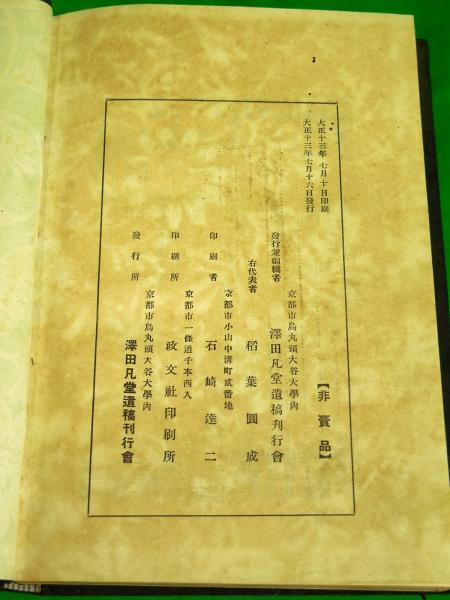 大正十三年七月十日印刷
大正十三年七月十六日發行
【非賣品】
京都市烏丸頭大谷大學內
發行兼編輯者 澤田凡堂遺稿刊行會
右代表者 稻葉圓成
京都市小山中溝町貳番地
印刷者 石崎達二
京都市一條通千本西入
印刷所 政文社印刷所
京都市烏丸頭大谷大學內
發行所 澤田凡堂遺稿刊行會